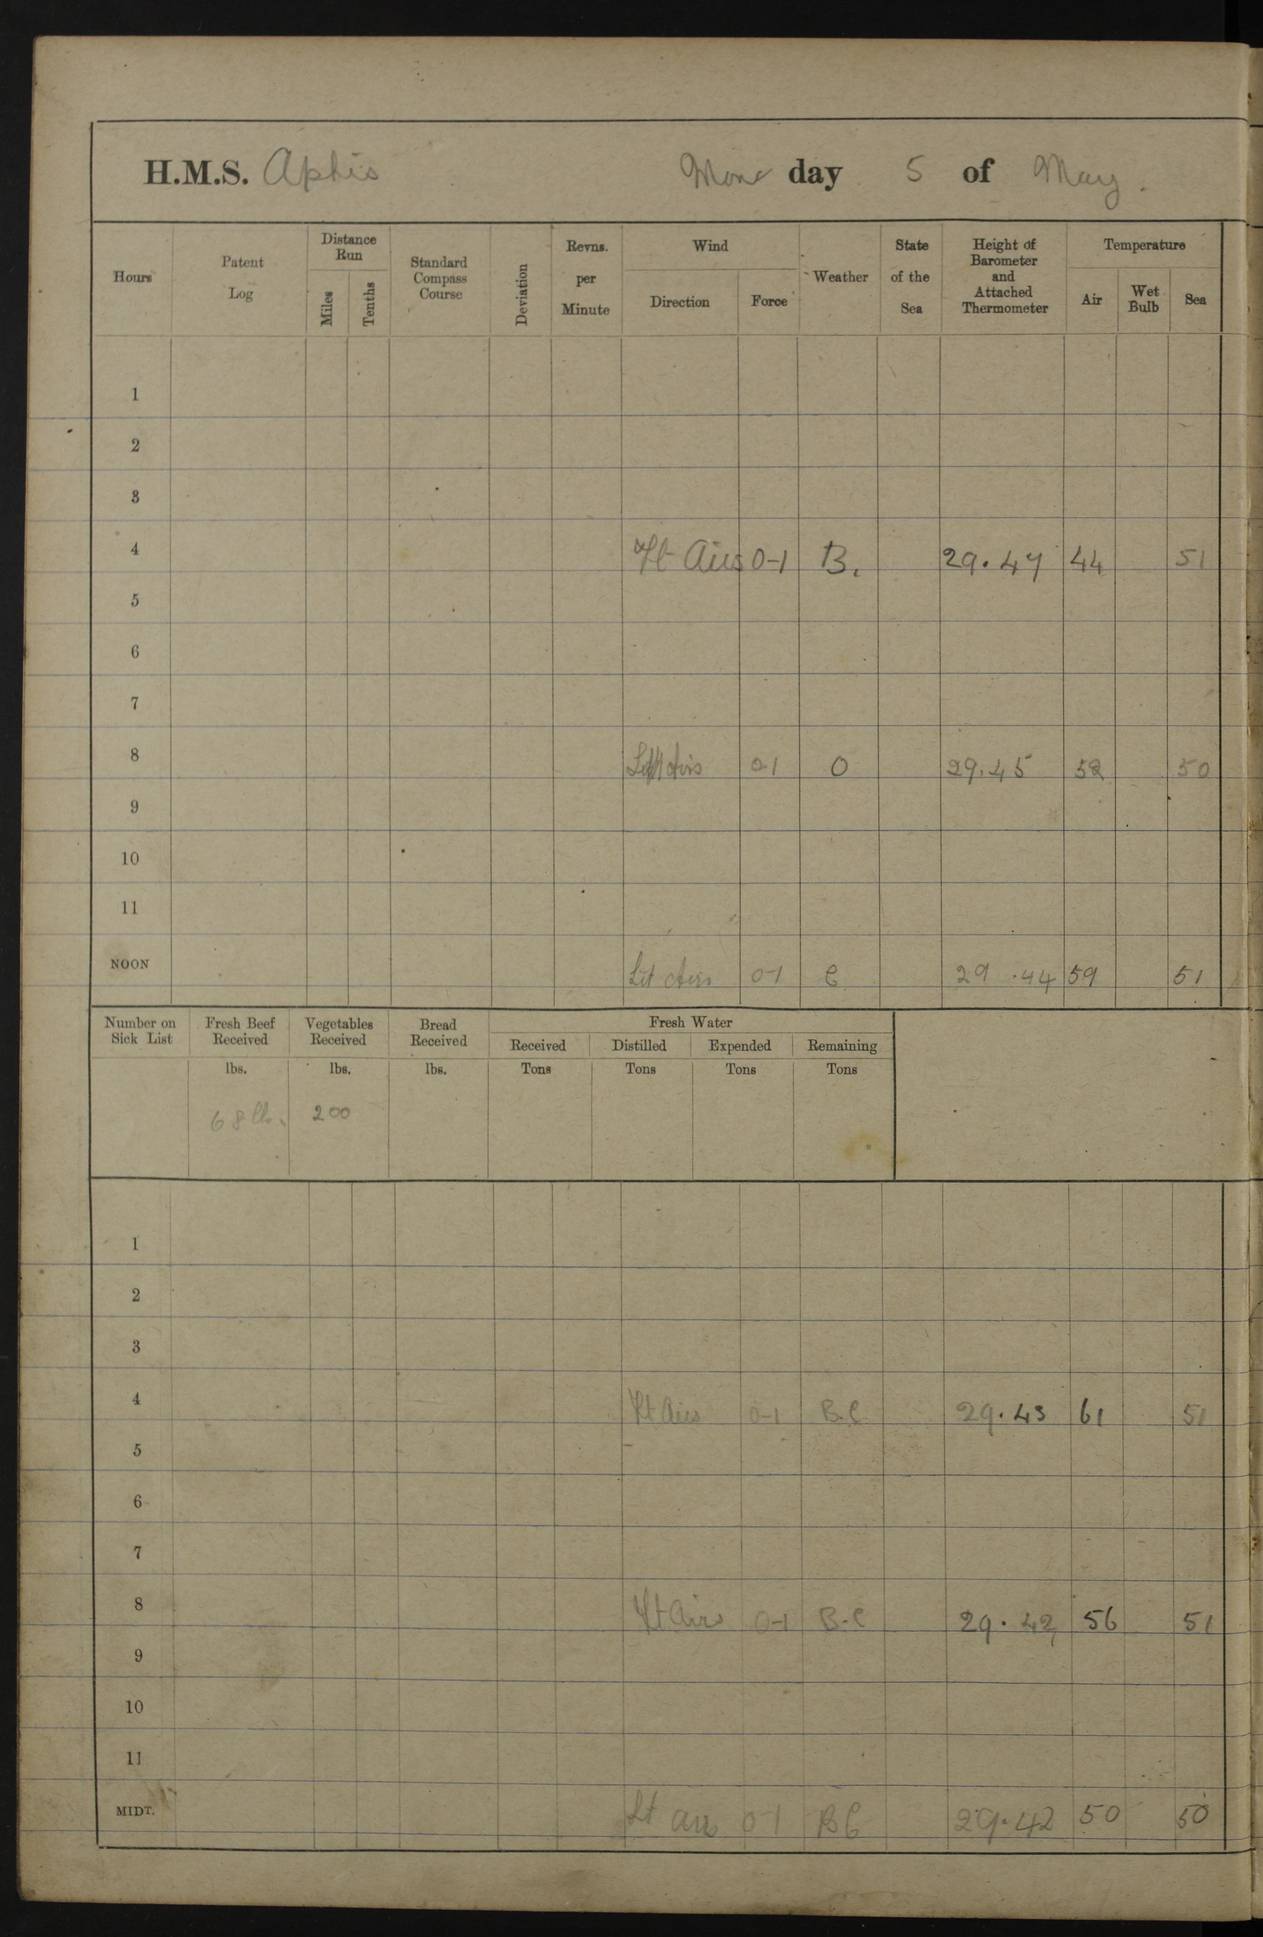 H.M.S. Aphis Monday 5 of May.
Hours Patent Log Distance Run Miles Tenths Standard Compass Course Deviation Revns. per Minute Wind Direction Force Weather State of the Sea Height of Barometer and Attached Thermometer Temperature Air Wet Bulb Sea
1
2
3
4 Lt Airs 0-1 B. 29.47 44 51
5
6
7
8 Lt Airs 0-1 O 29.45 52 50
9
10
11
NOON Lt Airs 0-1 C 29.44 59 51
Number on Sick List Fresh Beef Received Vegetables Received Bread Received Fresh Water
Received Distilled Expended Remaining
lbs. lbs. lbs. Tons Tons Tons Tons
68 lbs. 200
1
2
3
4 Lt Airs 0-1 B.C 29.43 61 51
5
6
7
8 Lt Airs 0-1 B-C 29.42 56 51
9
10
11
MIDT. Lt airs 0-1 BC 29.42 50 50